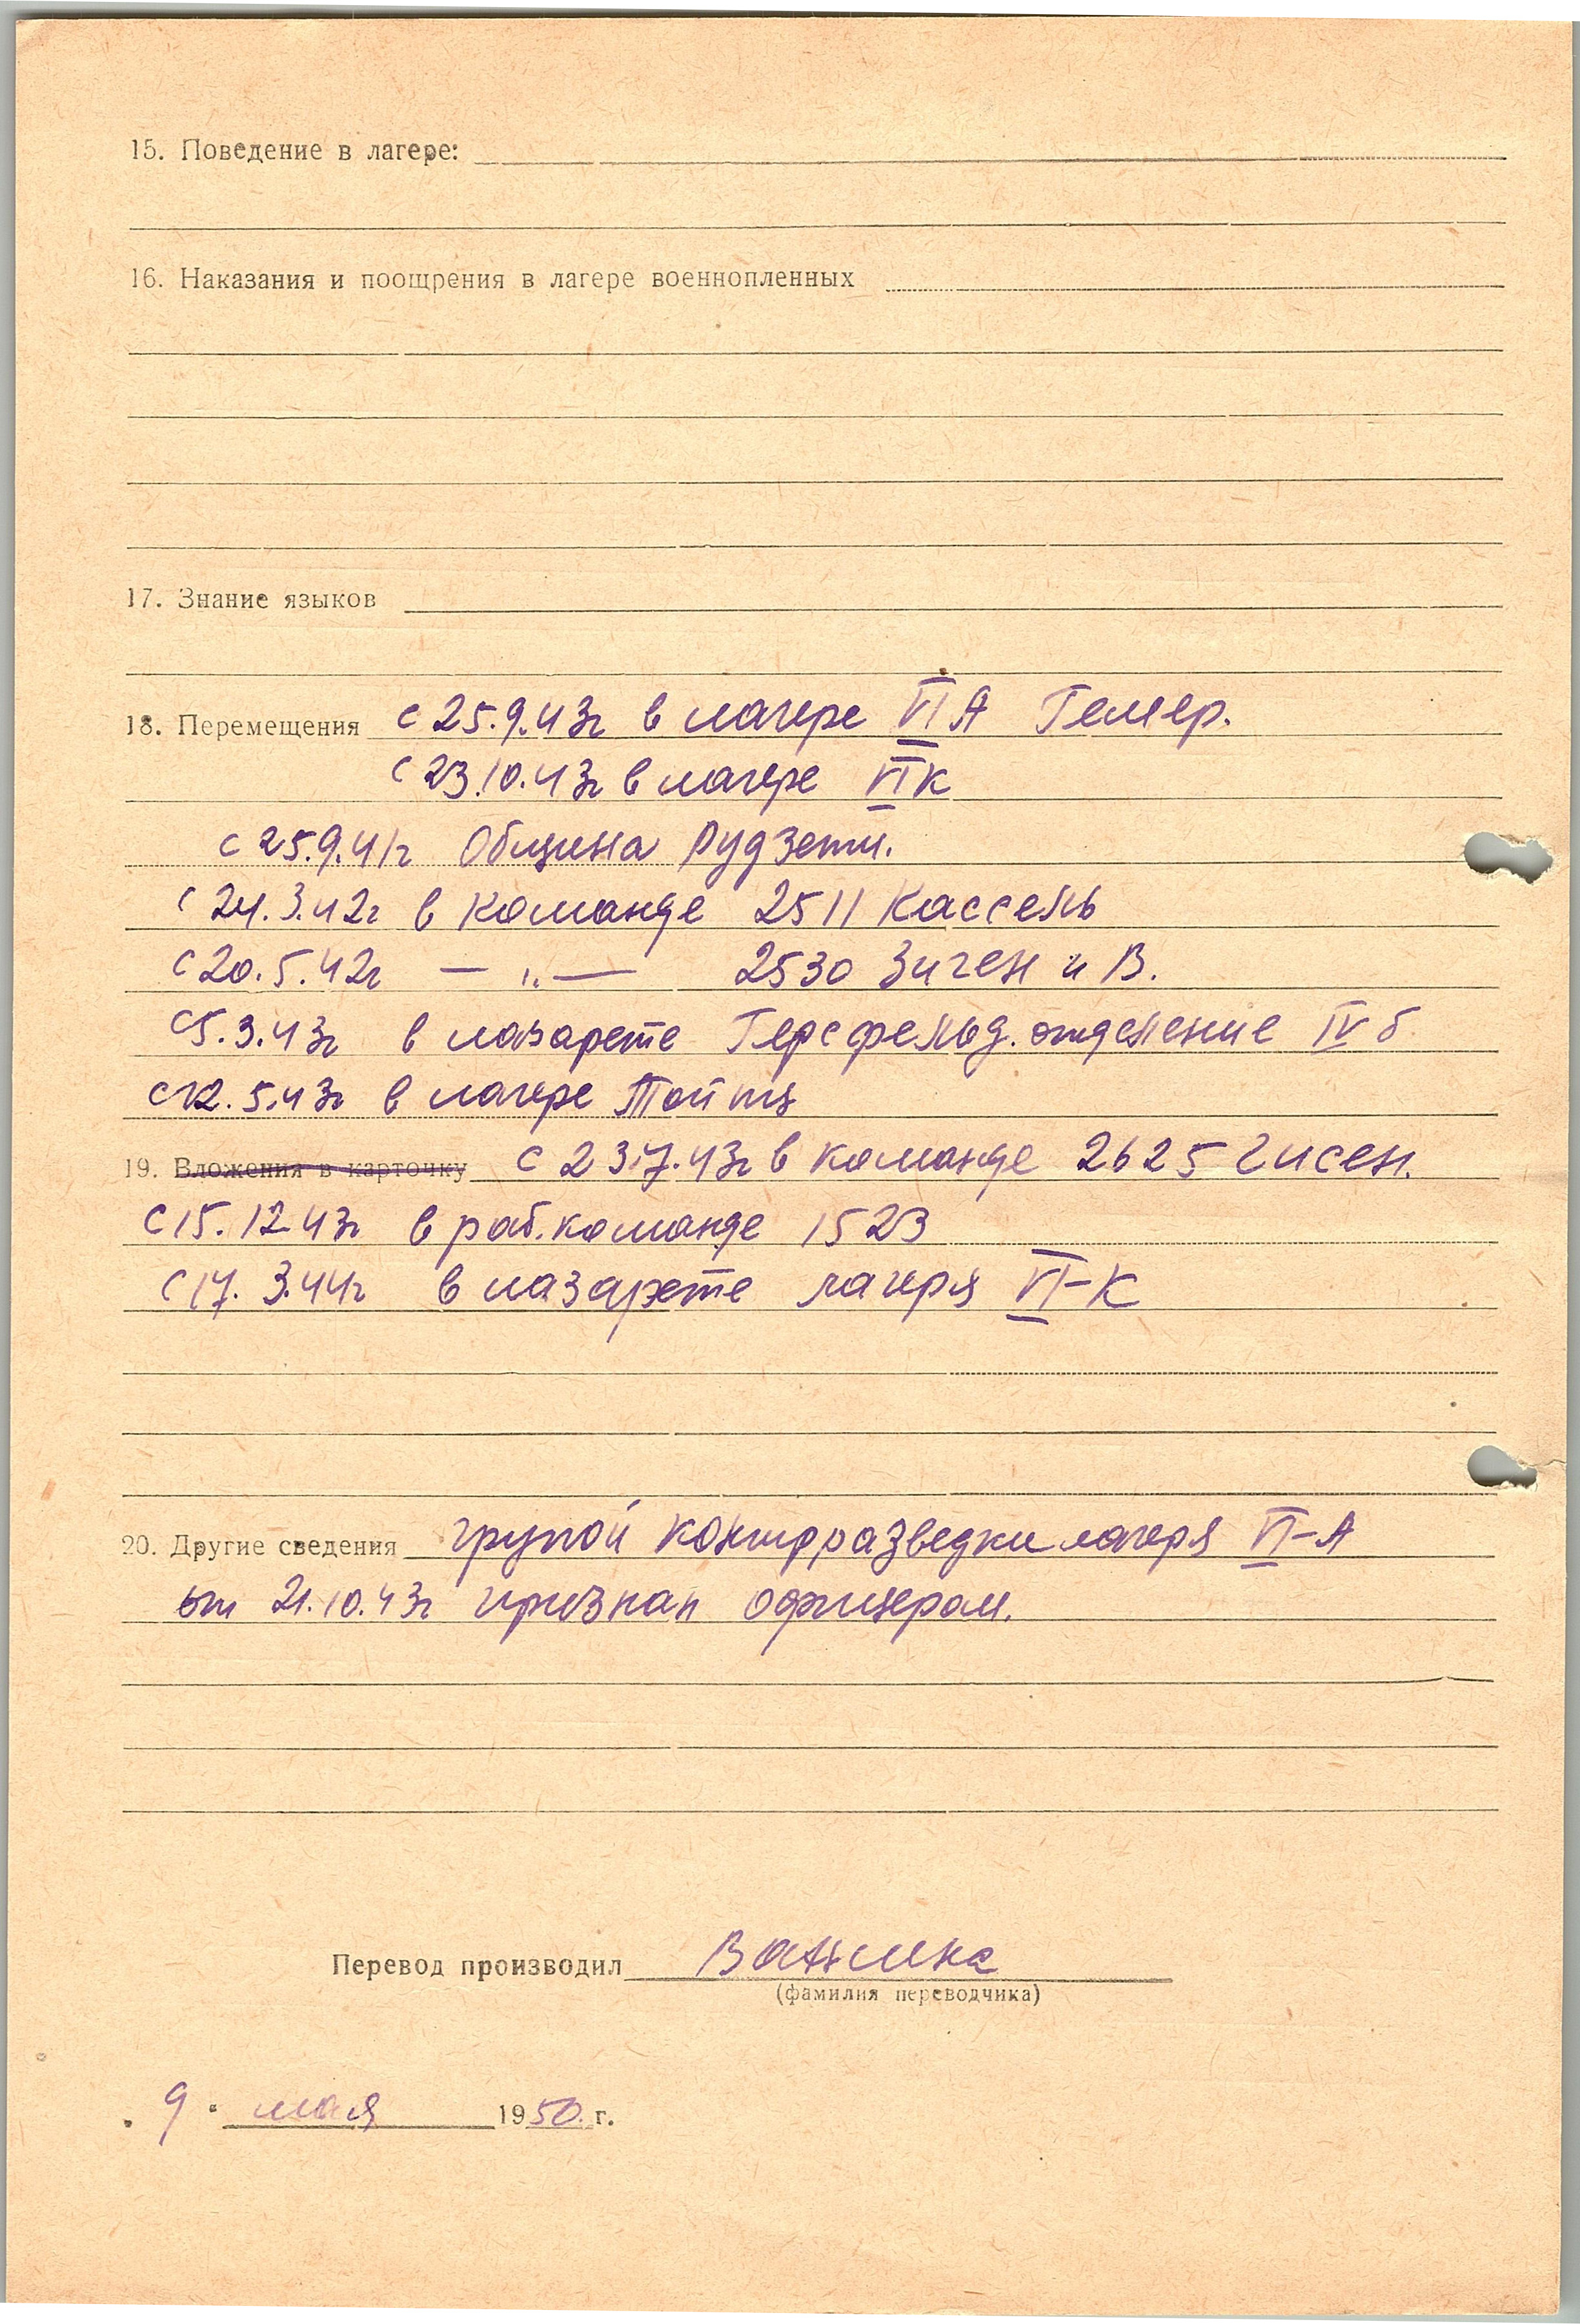 15. Поведение в лагере:
16. Наказания и поощрения в лагере военнопленных
17. Знание языков
18. Перемещения с 25.9.43г в лагере VI А Гемер.
с 23.10.43г в лагере VI К
с 25.9.41г Община Рудзети.
с 24.3.42г в команде 2511 Кассель
с 20.5.42г — „ — 2530 Зиген и В.
с 5.3.43г в лазарете Герсфельд. отделение IV б
с 12.5.43г в лагере Тойтц
19. Вложения в карточку с 23.7.43г в команде 2625 Гисен.
с 15.12.43г в раб. команде 1523
с 17.3.44г в лазарете лагеря VI-К
20. Другие сведения групой контрразведки лагеря VI-А
от 21.10.43г признан офицером.
Перевод производил Ванина
(фамилия переводчика)
„ 9 " мая 1950 г.